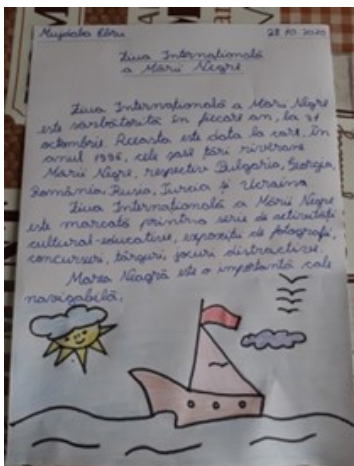 Mujdaba Ebru 28.10.2020
Ziua Internațională
a Mării Negre
Ziua Internațională a Mării Negre
este sărbătorită în fiecare an, la 31
octombrie. Aceasta este data la care, în
anul 1996, cele șase țări riverane
Mării Negre, respectiv Bulgaria, Georgia,
România, Rusia, Turcia și Ucraina
Ziua Internațională a Mării Negre
este marcată printr-o serie de activități
cultural-educative, expoziții de fotografii,
concursuri, târguri, jocuri distractive.
Marea Neagră este o importantă cale
navigabilă.